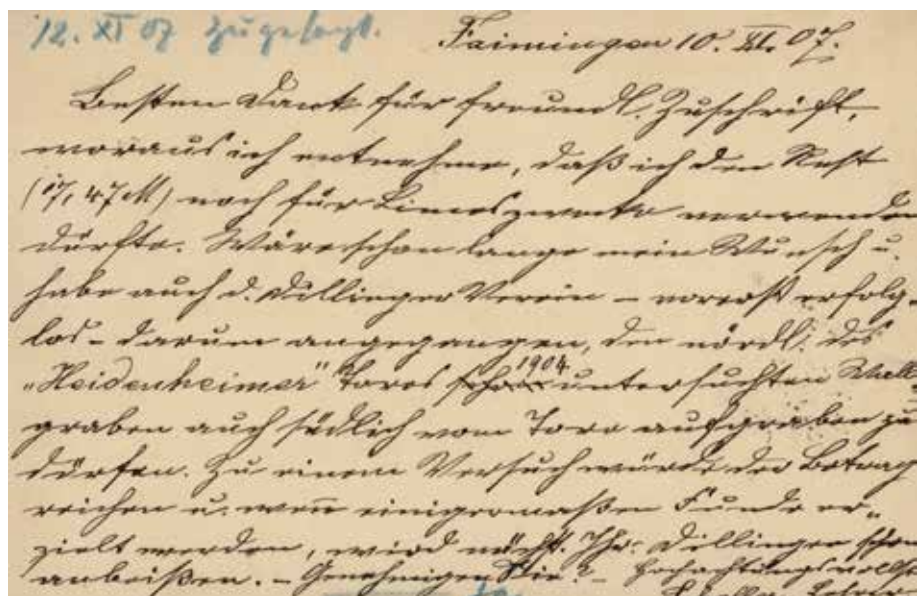 12. XI 07 zugesagt.
Faimingen 10. XI. 07.
Besten Dank für freundl. Zuschrift,
woraus ich entnehme, daß ich den Rest
(17,47 M) noch für Limeszwecke verwenden
dürfte. Wäre schon lange mein Wunsch u.
habe auch d. Dillinger Verein – vorerst erfolg-
los – darum angegangen, den nördl. des
„Heidenheimer" Tores 1904 untersuchten Wall-
graben auch südlich vom Tore aufgraben zu
dürfen. Zu einem Versuch würde der Betrag
reichen u. wenn einigermaßen Funde er-
zielt werden, wird nächst. Jhr. Dillingen schon
anbeißen. – Genehmigen Sie? – Hochachtungsvollst
Lehrer